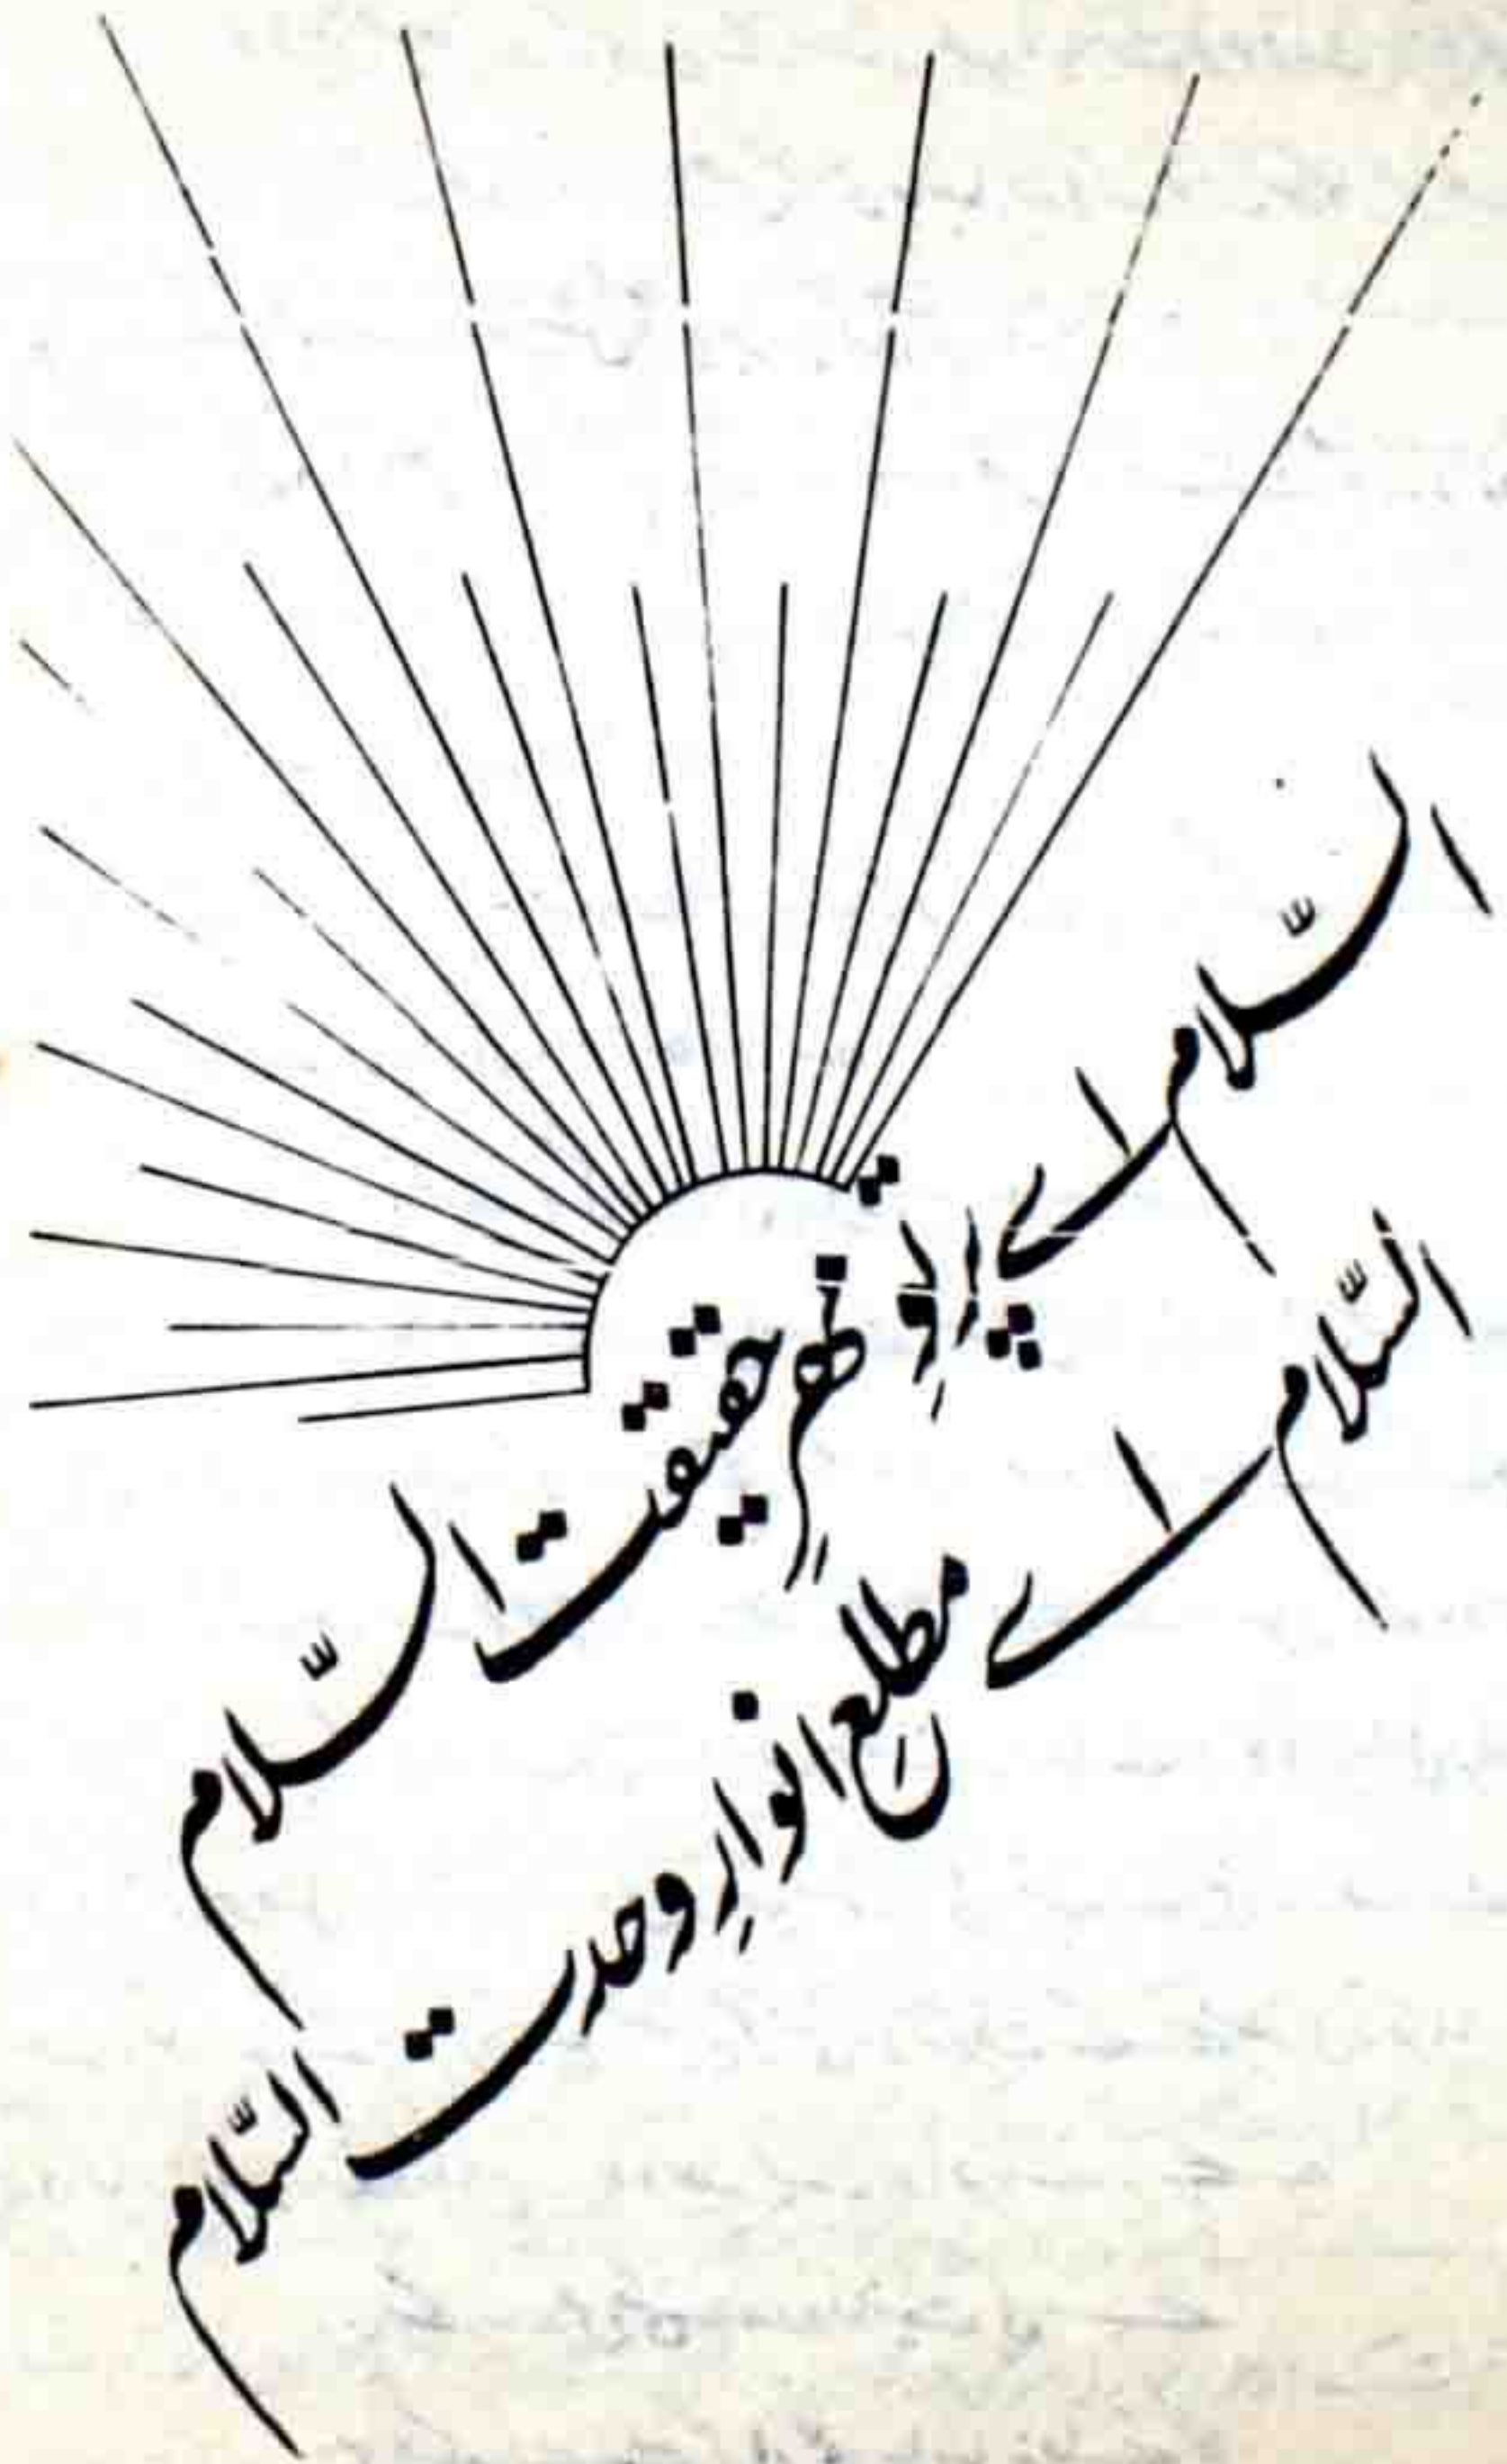 السّلام اے پرتوِ مہرِ حقیقت السّلام
السّلام اے مطلعِ انوارِ وحدت السّلام